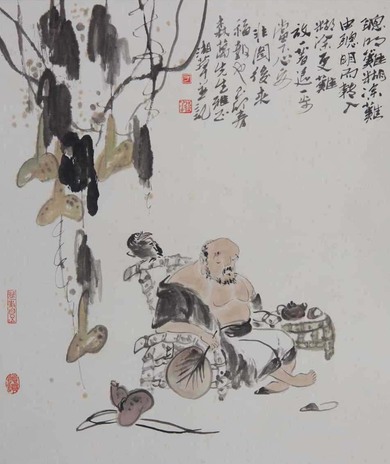 聰明難糊塗難
由聰明而轉入
糊塗更難
放著退一步
當下心安
非圖後來
福報也
先生雅正